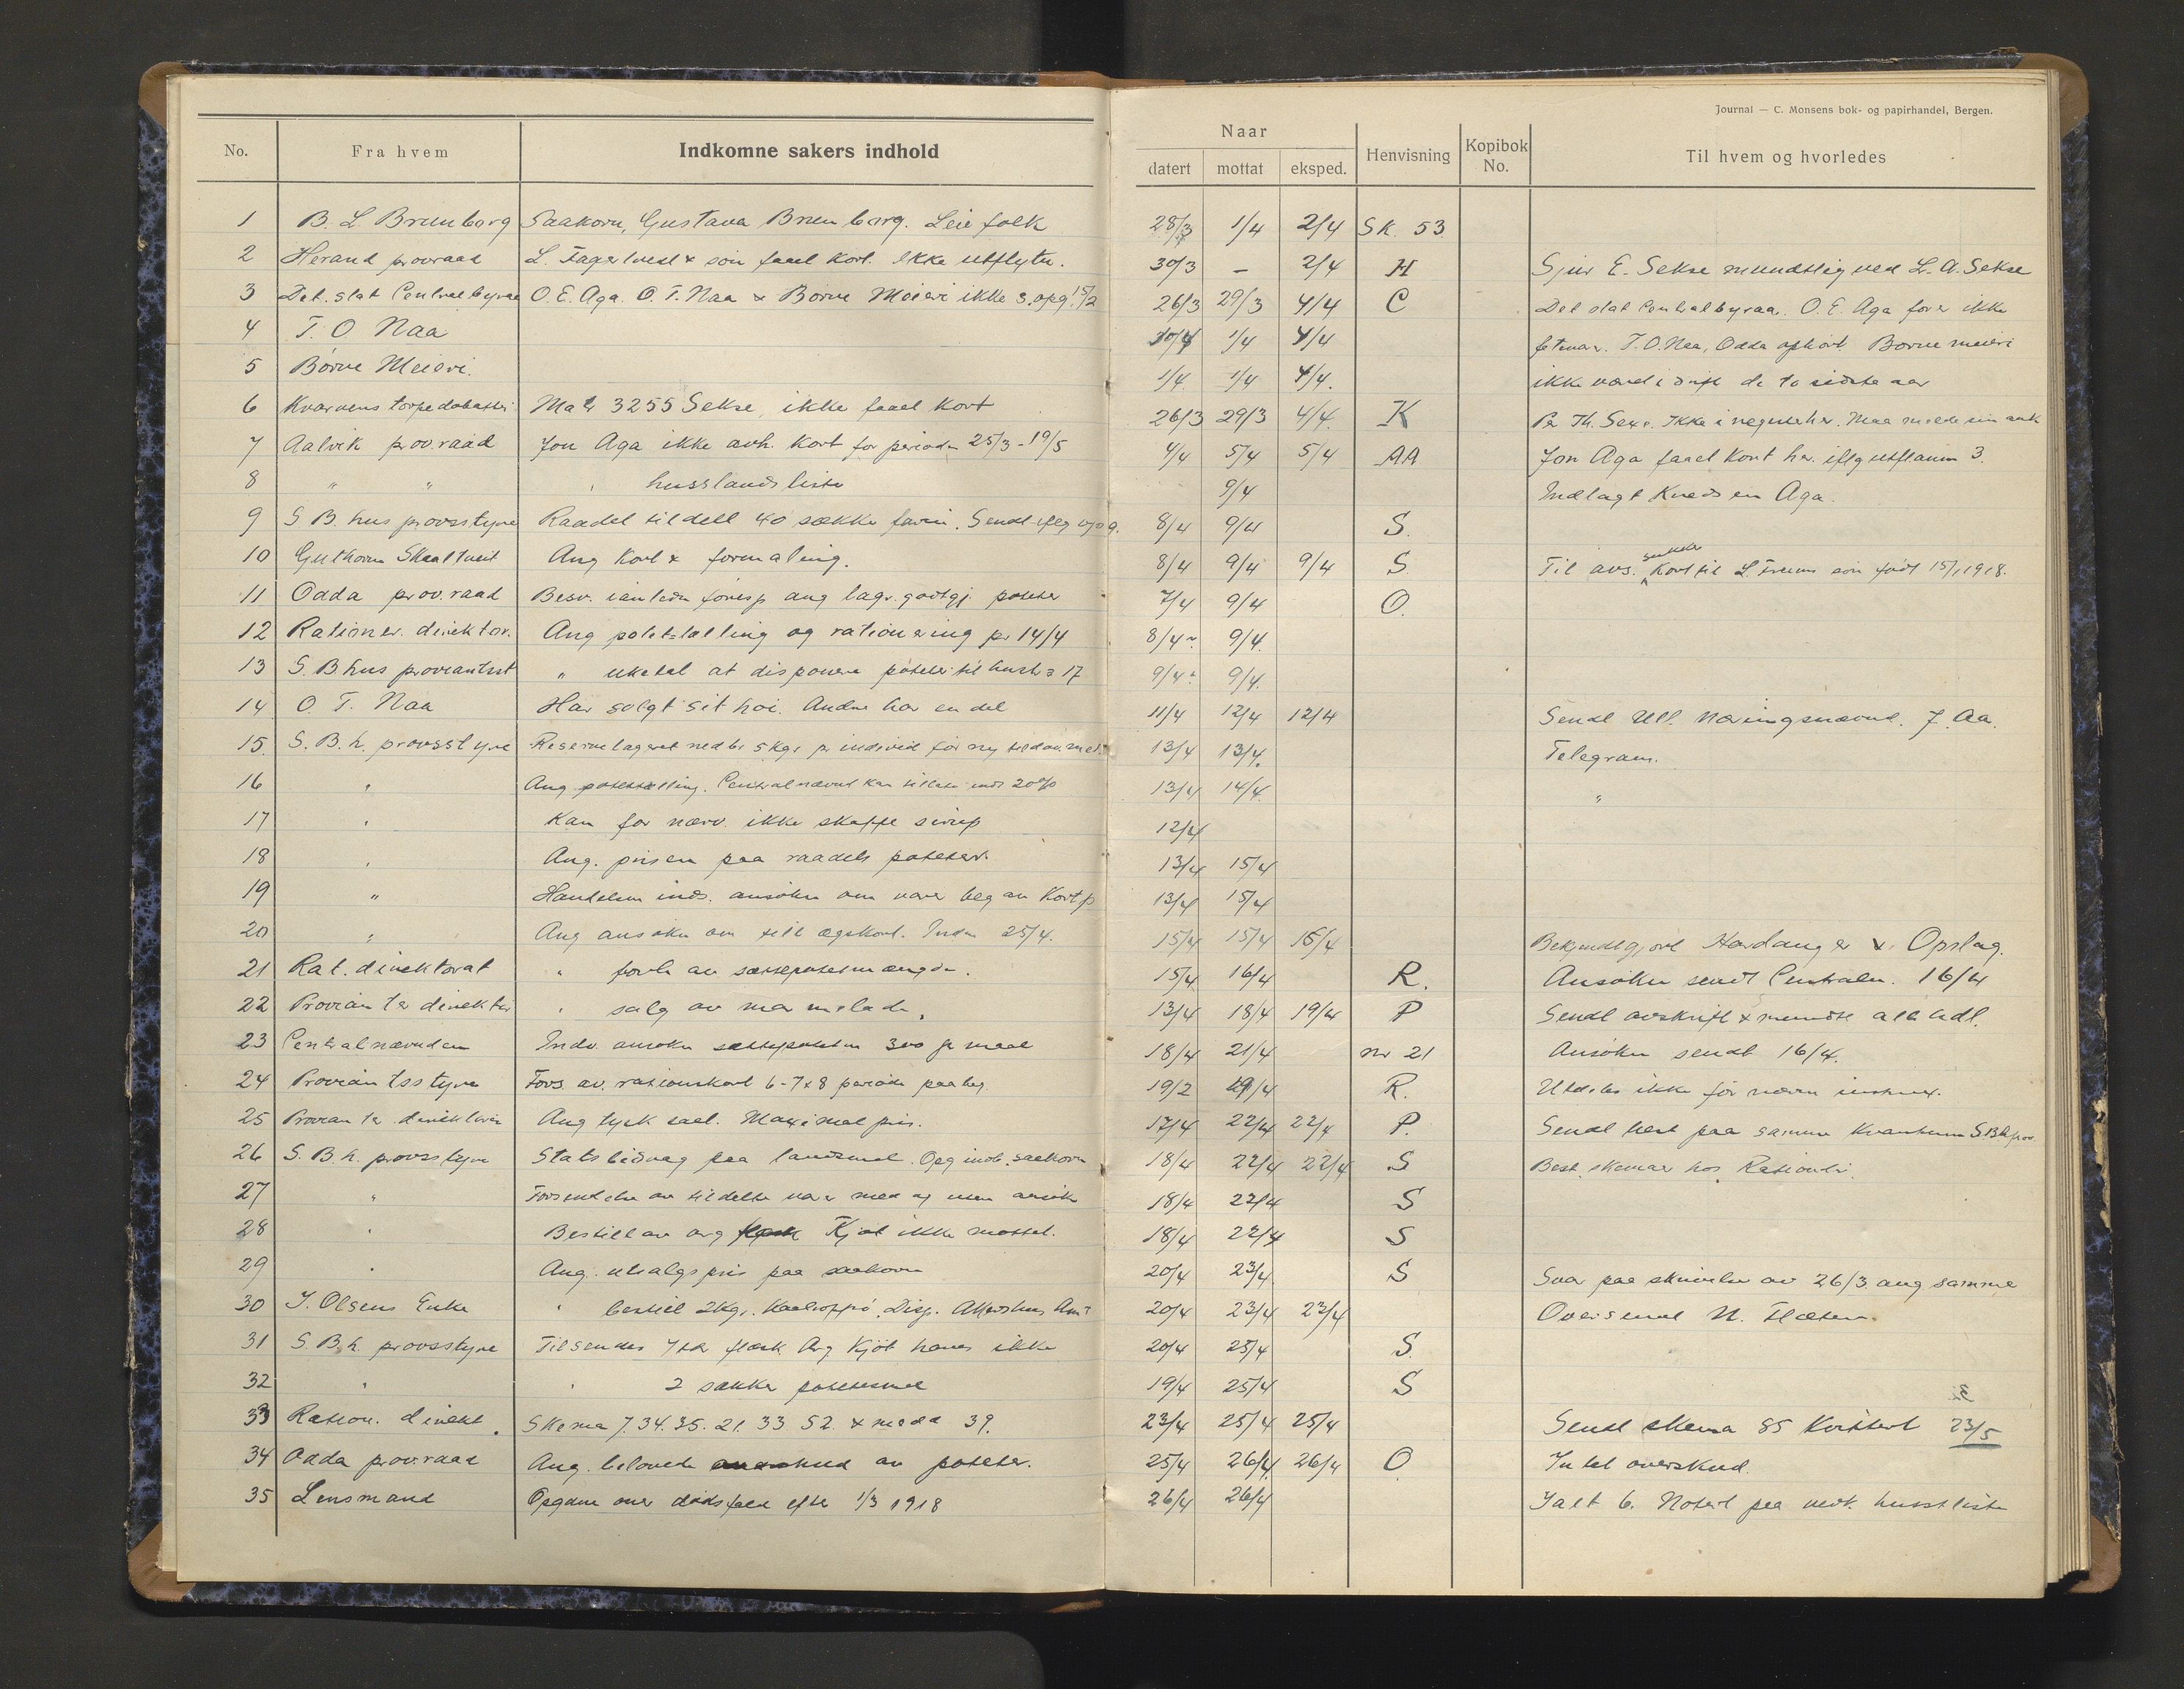 Journal — C. Monsens bok- og papirhandel, Bergen.
No. Fra hvem Indkomne sakers indhold Naar Henvisning Kopibok No. Til hvem og hvorledes
datert mottat eksped.
1 B. L. Brunborg Saakorn, Gustava Brunborg. Leiefolk 28/3 1/4 2/4 Sk. 53
2 Herand provraad L. Fagertvedt & son faaet kort. Ikke utflytn. 30/3 – 2/4 H Sjur E. Sekse mundtlig ved L. A. Sekse
3 Det. stat Centralbyraa O. E. Aga. O. T. Naa & Börve Meieri ikke s. opg. 15/2 26/3 29/3 4/4 C Det stat Centralbyraa. O. E. Aga ikke
4 T. O Naa 1/4 4/4 T. O. Naa, Odda ophört Börve meieri
5 Börve Meieri. 1/4 1/4 4/4. ikke været i drift de to sidste aar
6 Kvarvens torpedobatteri Matr 3255 Sekse, ikke faaet kort 26/3 29/3 4/4. K Ikke i Maa melde sin
7 Aalvik prov.raad Jon Aga ikke avh. kort for perioden 25/3 - 19/5 4/4 5/4 5/4 AA Jon Aga faaet kort her. 3.
8 " " " husstandsliste 9/4 Indlagt Aga.
9 S. B. hus provsstyre Raadet tildelt 40 sække farin. Sendt 8/4 9/4 S.
10 Guthorm Skaaltveit Ang kort & formaling. 8/4 9/4 9/4 S. Til avs. sukker kort til L. son född 15/1 1918.
11 Odda prov.raad Besv. ang lagr. godtgj. poteter 7/4 9/4 O.
12 Rationer. direktor. Ang potettælling og rationering pr 14/4 8/4 9/4.
13 S. B. hus proviantsst " uketal at disponere poteter til hush = 17 9/4 9/4.
14 O. T. Naa Har solgt sit höi. Andre har en del 11/4 12/4 12/4 Sendt Ull. Næringsnævnd. J. Aa.
15. S. B. h. provsstyre Reservelageret ned til 5 kgr pr individ för ny 13/4 13/4. Telegram.
16 " Ang. potettælling. Centralnævnd kan 20% 13/4 14/4. "
17 " Kan for nærv. ikke skaffe sirup 12/4
18 " Ang. prisen paa raadets poteter. 13/4 15/4
19 " inds. ansökn om varer 13/4 15/4
20 " Ang ansökn om till ægskort. Inden 25/4. 15/4 15/4 15/4 Bekjendtgjort Hardanger & Opslag.
21 Rat. direktorat " av sættepotetmængde. 15/4 16/4 R. Ansökn sendt Centraln. 16/4
22 Provianter direktör " salg av marmelade. 13/4 18/4 19/4 P Sendt avskrift & mundtl alle hdl.
23 Centralnævnden Indv. ansökn sættepoteter 300 pr maal 18/4 21/4 nr 21 Ansökn sendt 16/4.
24 Proviantsstyre Fors. av. rationskort 6-7 & 8 periode 19/2 19/4 R. Utdeles ikke för
25 Provianter. direktören Ang tysk salt. Maximal pris. 17/4 22/4 22/4 P. Sendt paa samme kvantum S.Bh. prov.
26 S. B. h. provsstyre Statsbidrag paa landsmel. Opg indk. saakorn 18/4 22/4 22/4 S Best. skemaer hos
27 " Forsendelse av tildelte varer med og uten ansökn 18/4 22/4 S
28 " arg Kjöt ikke mottat. 18/4 22/4 S
29 " Ang. utsalgspris paa saakorn 20/4 23/4. S Svar paa skrivelse av 26/3 ang samme
30 J. Olsens Enke " bestilt 2 kgr. Disp. Akershus Amt 20/4 23/4 23/4 Oversendt
31 S. B. h. provsstyre Tilsendes flesk. Arg Kjöt haves ikke 20/4 25/4 S.
32 " " 2 sække potetesmel 19/4 25/4 S
33 Ration. direkt. Skema 7. 34. 35. 21. 33 52. & 39. 23/4 25/4 25/4 Sendt skema 85 23/5
34 Odda prov.raad Ang. av poteter. 25/4 26/4 26/4 O. Intet overskud.
35 Lensmand Opgave over dödsfald efter 1/3 1918 26/4 26/4 Ialt 6. Notert paa husstliste